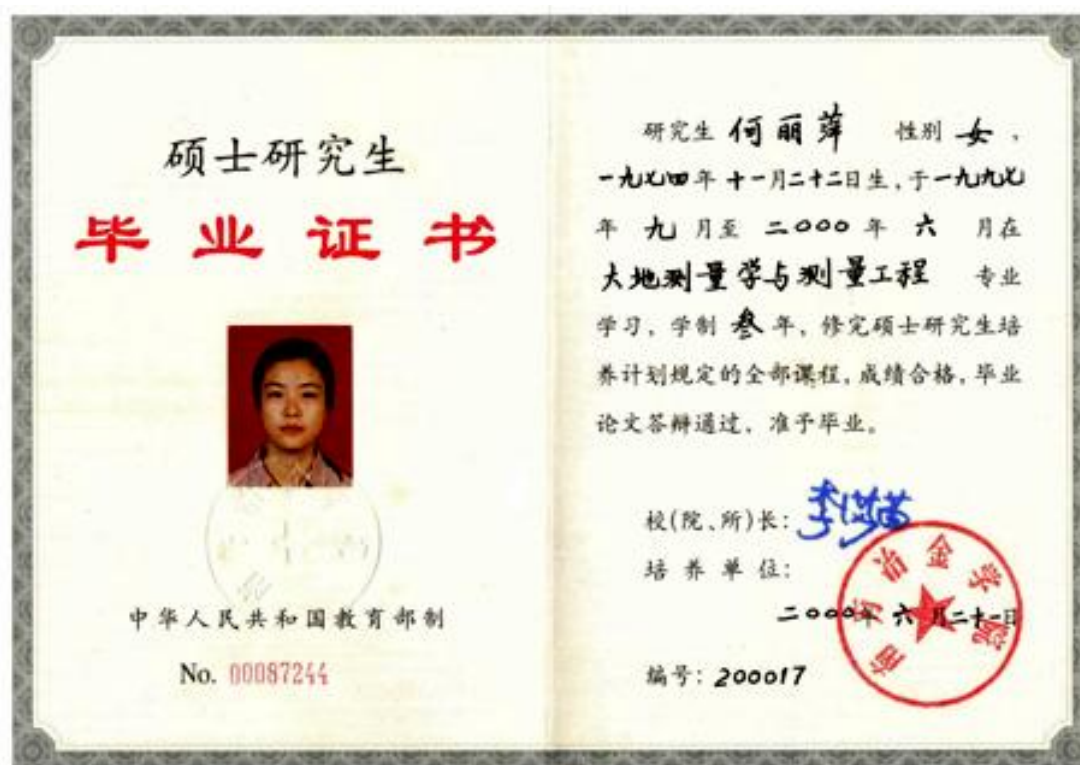 硕士研究生
毕业证书
中华人民共和国教育部制
No. 00087244
研究生 何丽萍 性别 女,
一九七四年十一月二十二日生,于一九九七
年 九 月至 二〇〇〇 年 六 月在
大地测量学与测量工程 专业
学习,学制 叁 年,修完硕士研究生培
养计划规定的全部课程,成绩合格,毕业
论文答辩通过,准予毕业。
校(院、所)长:
培养单位:
南方冶金学院
二〇〇〇年 六 月二十一日
编号:200017